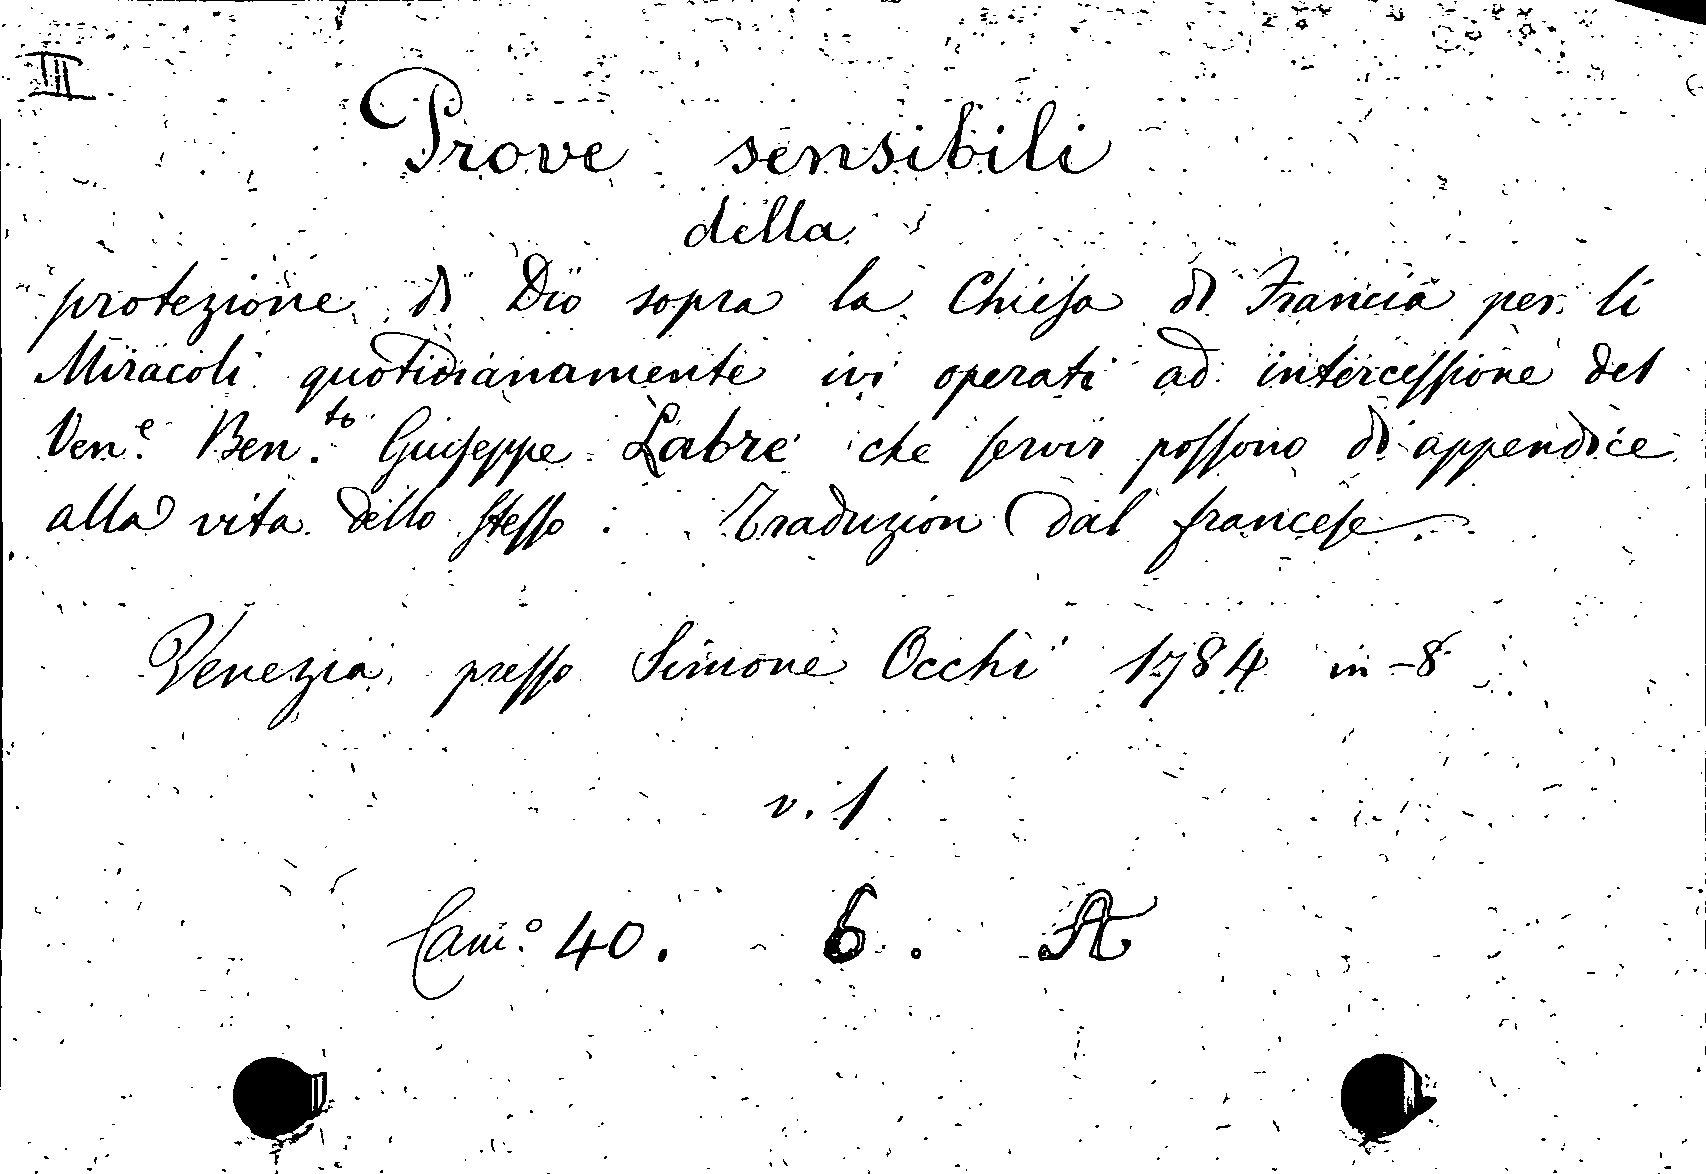 III
Prove sensibili
della
protezione di Dio sopra la Chiesa di Francia per li
Miracoli quotidianamente ivi operati ad intercessione del
Ven.e Ben.to Giuseppe Labre che servir possono di appendice
alla vita dello stesso. Traduzion dal francese.
Venezia, presso Simone Occhi 1784 in-8
v. 1
Cam.o 40. 6. A